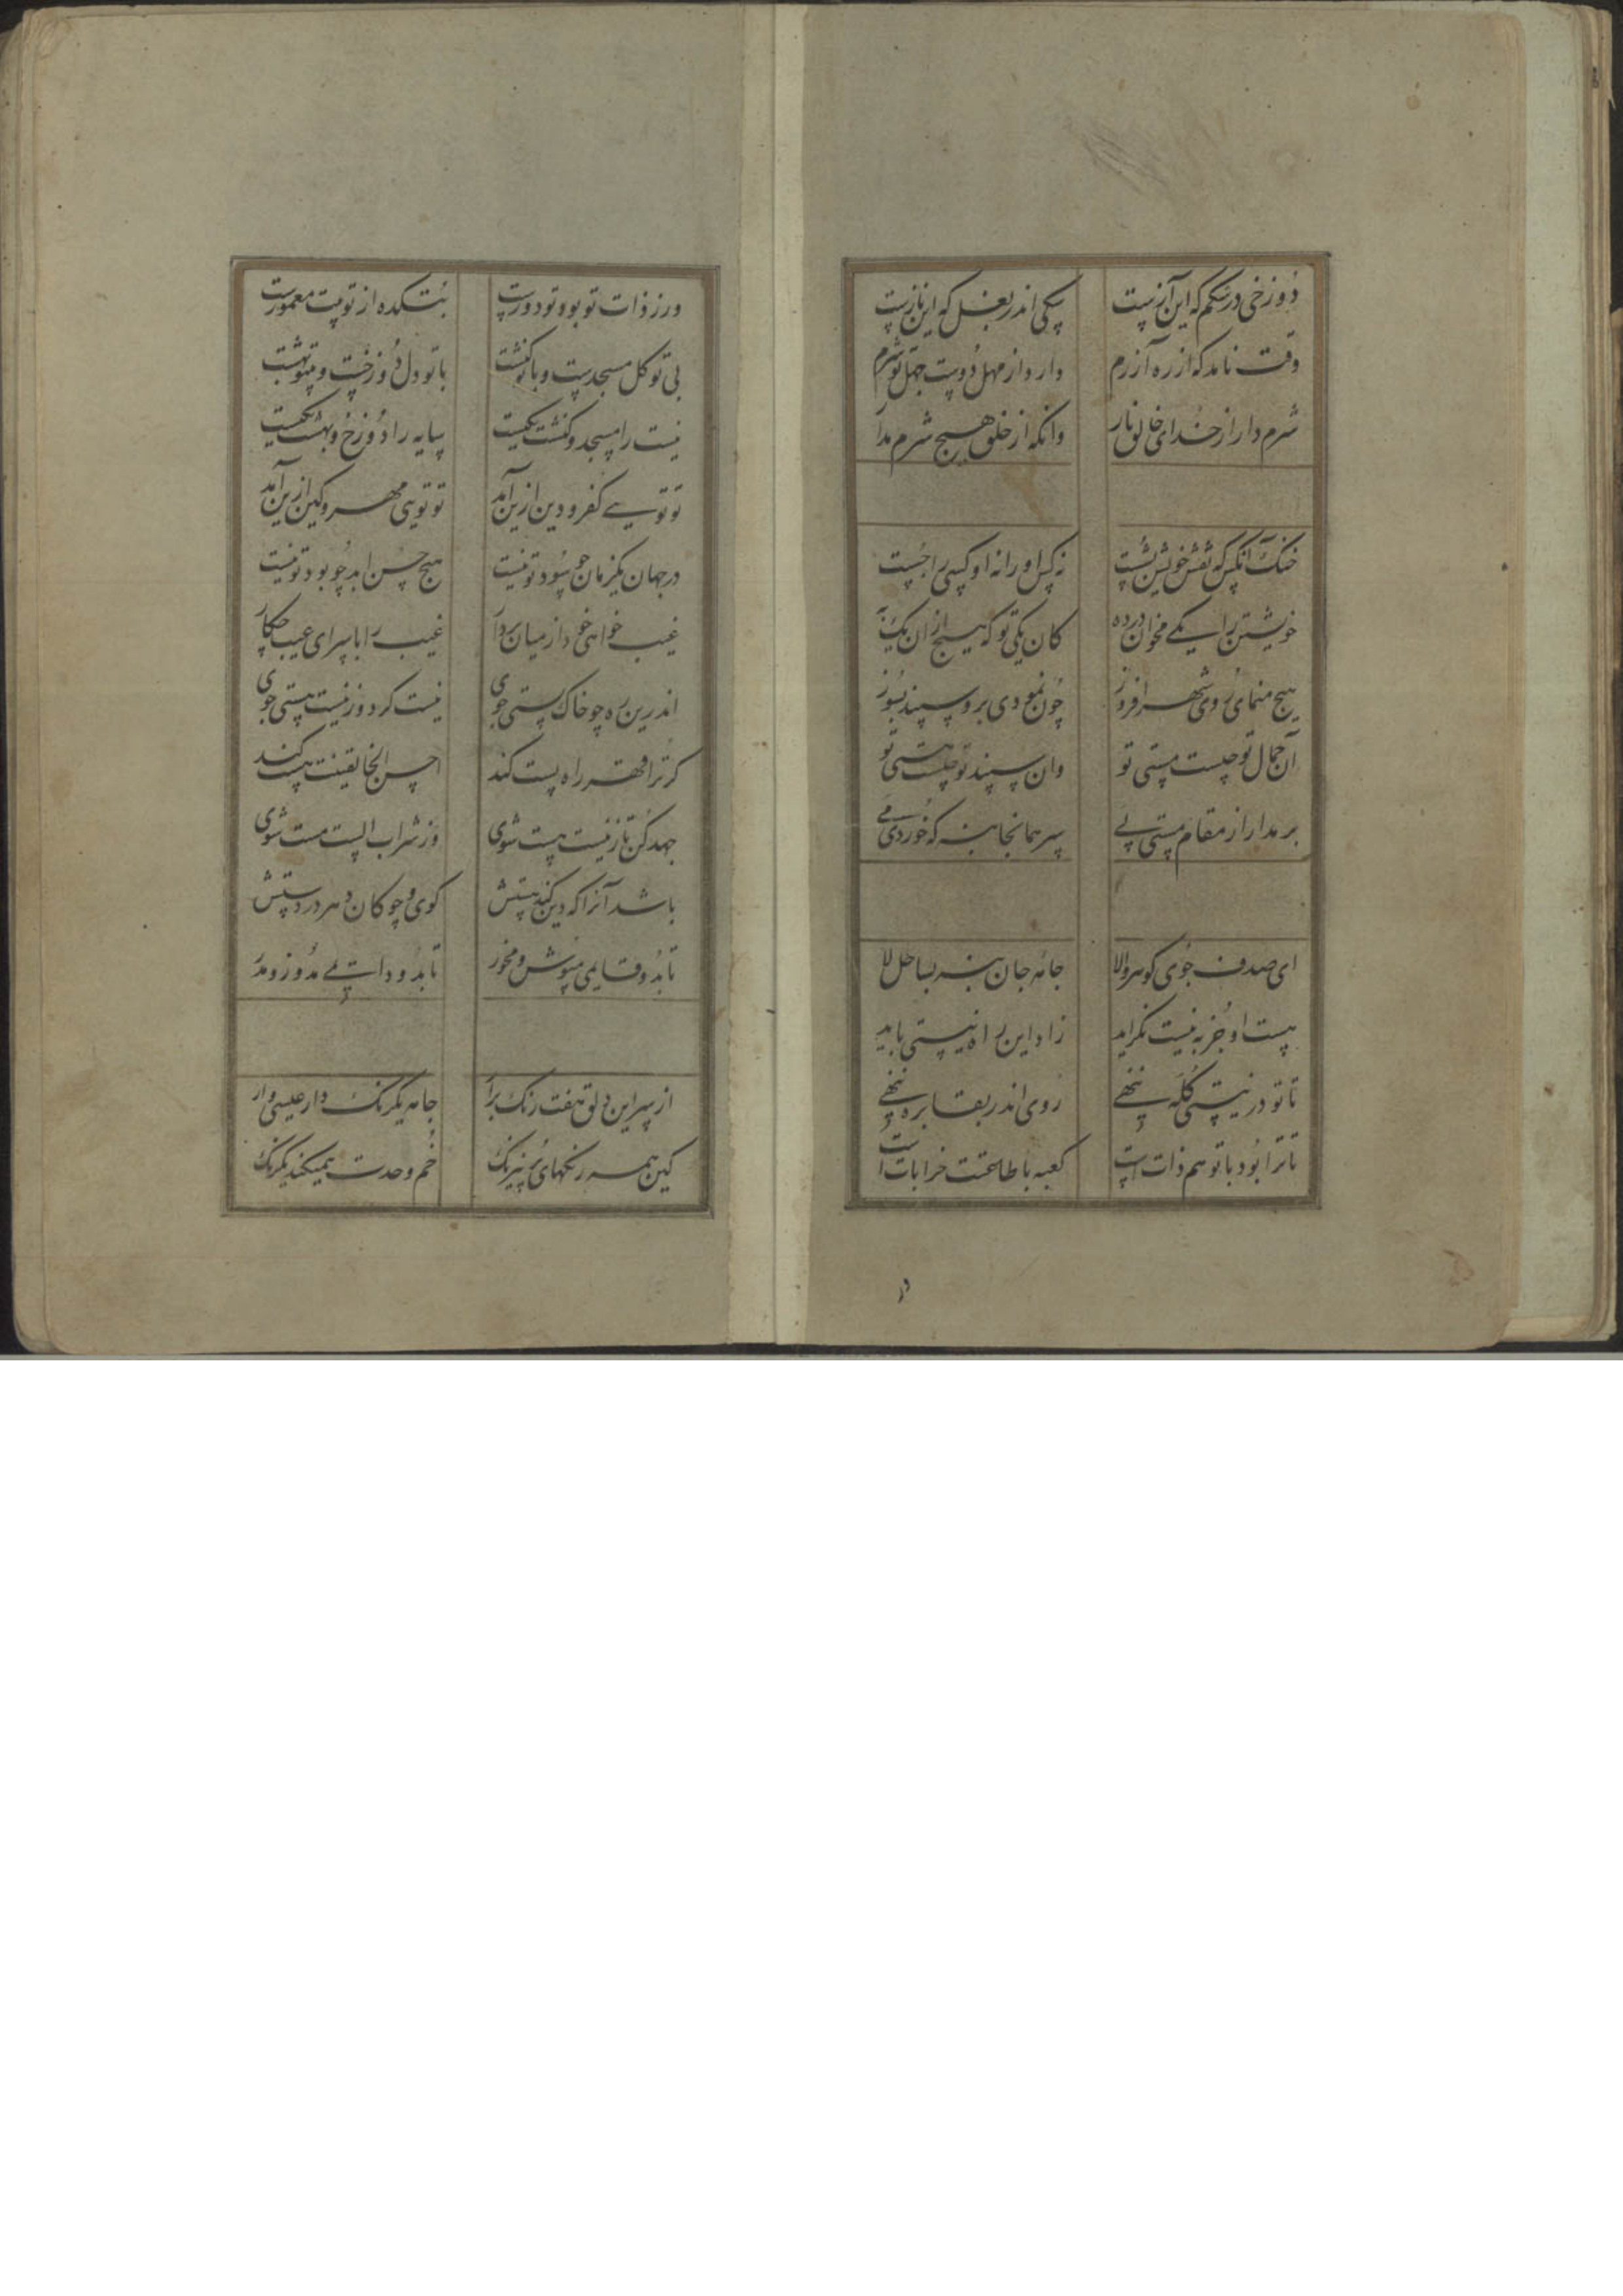 دوزخی در شکم که این آزست سگی اندر بغل که این نازست
وقت نامد که از ره آزرم وارد از مهل دوست جهل تو شرم
شرم دار از خدای خالق بار وانکه از خلق هیچ شرم مدار
خنک آنکس که نقش خویش بشست نه کس او را نه او کسی را جست
خویشتن را یکی مخوان در ده کان یکی تو که هیچ ازان یک به
هیچ منمای روی شهر افروز چون نمودی برو سپند بسوز
آن جمال تو چیست مستی تو وان سپند تو چیست هستی تو
بر مدار از مقام مستی پی سر همانجا بنه که خوردی می
ای صدف جوی گوهر والا جامه جان بنه بساحل لا
هست او جز به نیست نگراید زاد این راه نیستی باید
تا تو در نیستی کله ننهی روی اندر بقا بره ننهی
تا ترا بود با تو هم ذاتست کعبه با طاعتت خراباتست
ور ز ذات تو بود تو دورست بتکده از تو بیت معمورست
بی تو کل مسجدست و با تو کنشت با تو دل دوزخست و بیتو بهشت
نیست را مسجد و کنشت یکیست سایه را دوزخ و بهشت یکیست
تو تویی کفر و دین ازین آمد تو تویی مهر و کین ازین آمد
در جهان یکزمان چو سود تو نیست هیچ حسن ابد چو بود تو نیست
غیب خواهی خود از میان بردار غیب را با سرای عیب چکار
اندرین ره چو خاک پستی جوی نیست گرد و ز نیست هستی جوی
گر ترا قهر راه پست کند احسن الخالقینت هست کند
جهد کن تا ز نیست هست شوی وز شراب الست مست شوی
باشد آنرا که دین کند هستش گوی و چوگان دهر در دستش
تا بدو وقایمی مپوش و مخور تا بدو داستی مدوز و مدر
از پی این دلق هفت رنگ برآر جامه یکرنگ دار عیسی وار
کین همه رنگهای پر نیرنگ خم وحدت همیکند یکرنگ